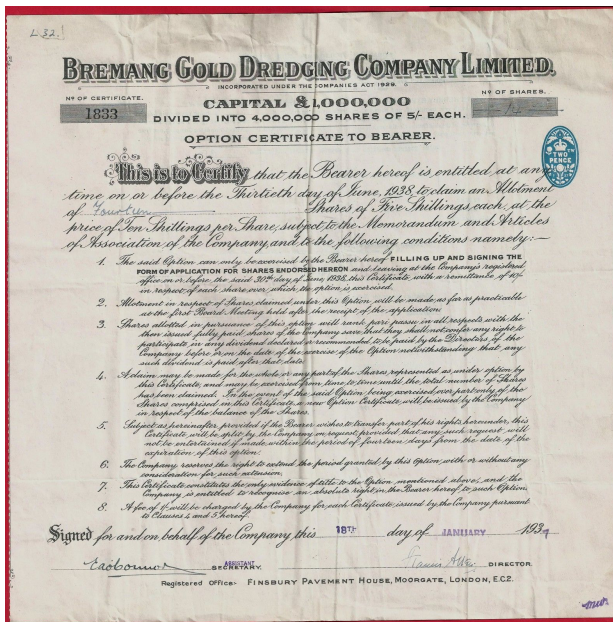 L 32.
BREMANG GOLD DREDGING COMPANY LIMITED.
INCORPORATED UNDER THE COMPANIES ACT 1929.
Nº OF CERTIFICATE.
1833
CAPITAL £1,000,000
DIVIDED INTO 4,000,000 SHARES OF 5/- EACH.
Nº OF SHARES.
OPTION CERTIFICATE TO BEARER.
TWO PENCE
This is to Certify that the Bearer hereof is entitled at any
time on or before the Thirtieth day of June, 1938, to claim an Allotment
of Fourteen Shares of Five Shillings each, at the
price of Ten Shillings per Share, subject to the Memorandum and Articles
of Association of the Company, and to the following conditions namely:—
1. The said Option can only be exercised by the Bearer hereof FILLING UP AND SIGNING THE
FORM OF APPLICATION FOR SHARES ENDORSED HEREON and leaving at the Company's registered
office on or before the said 30th day of June 1938, this Certificate, with a remittance of 10/-
in respect of each share over which the option is exercised.
2. Allotment in respect of Shares claimed under this Option will be made as far as practicable
at the first Board Meeting held after the receipt of the application.
3. Shares allotted in pursuance of this option will rank pari passu in all respects with the
then issued fully paid shares of the Company save that they shall not confer any right to
participate in any dividend declared or recommended to be paid by the Directors of the
Company before or on the date of the exercise of the Option notwithstanding that any
such dividend is paid after that date.
4. A claim may be made for the whole or any part of the Shares represented as under option by
this Certificate, and may be exercised from time to time until the total number of Shares
has been claimed. In the event of the said Option being exercised over part only of the
Shares comprised on this Certificate, a new Option Certificate will be issued by the Company
in respect of the balance of the Shares.
5. Subject as hereinafter provided if the Bearer wishes to transfer part of his rights hereunder this
Certificate will be split by the Company on request provided that any such request will
not be entertained if made within the period of fourteen days from the date of the
expiration of this option.
6. The Company reserves the right to extend the period granted by this Option with or without any
consideration for such extension.
7. This Certificate constitutes the only evidence of title to the Option mentioned above, and the
Company is entitled to recognise an absolute right in the Bearer hereof to such Option.
8. A fee of 1/- will be charged by the Company for each Certificate issued by the Company pursuant
to Clauses 4 and 5 hereof.
Signed for and on behalf of the Company this 18TH day of JANUARY 1937
ASSISTANT
SECRETARY. DIRECTOR.
Registered Office:- FINSBURY PAVEMENT HOUSE, MOORGATE, LONDON, E.C.2.